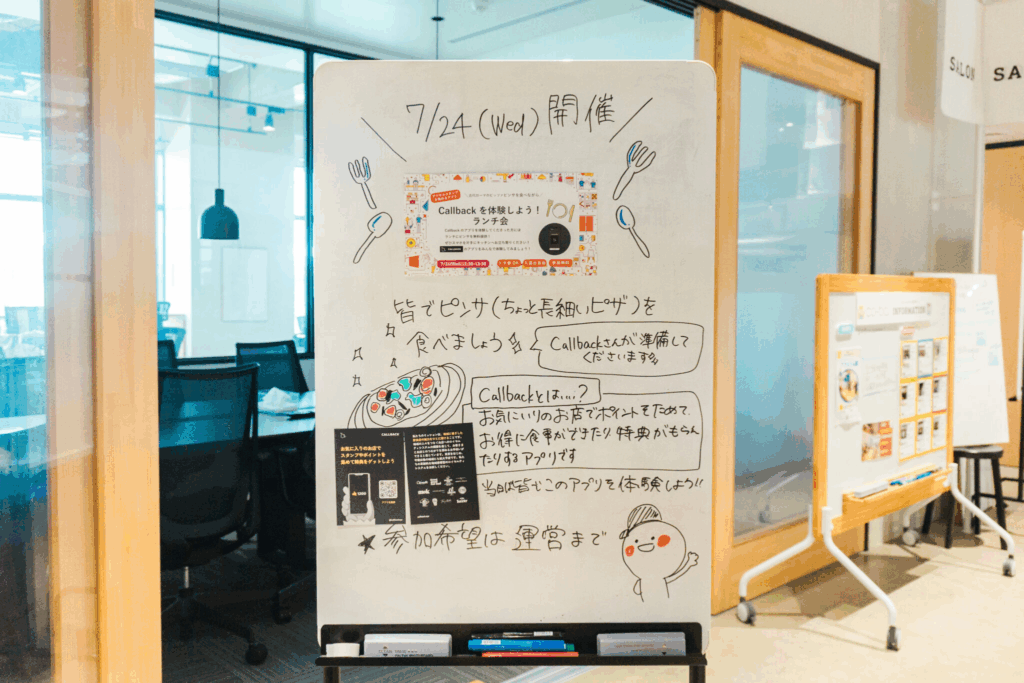 7/24(Wed)開催
Callback を体験しよう！
ランチ会
皆でピンサ(ちょっと長細いピザ)を
食べましょう
Callbackさんが準備して
くださいます
Callbackとは...?
お気にいりのお店でポイントをためて、
お得に食事ができたり特典がもらえ
たりするアプリです
当日は皆でこのアプリを体験しよう!!
CALLBACK
お気に入りのお店で
スタンプやポイントを
集めて特典をゲットしよう
★参加希望は運営まで
SALON
SA
INFORMATION